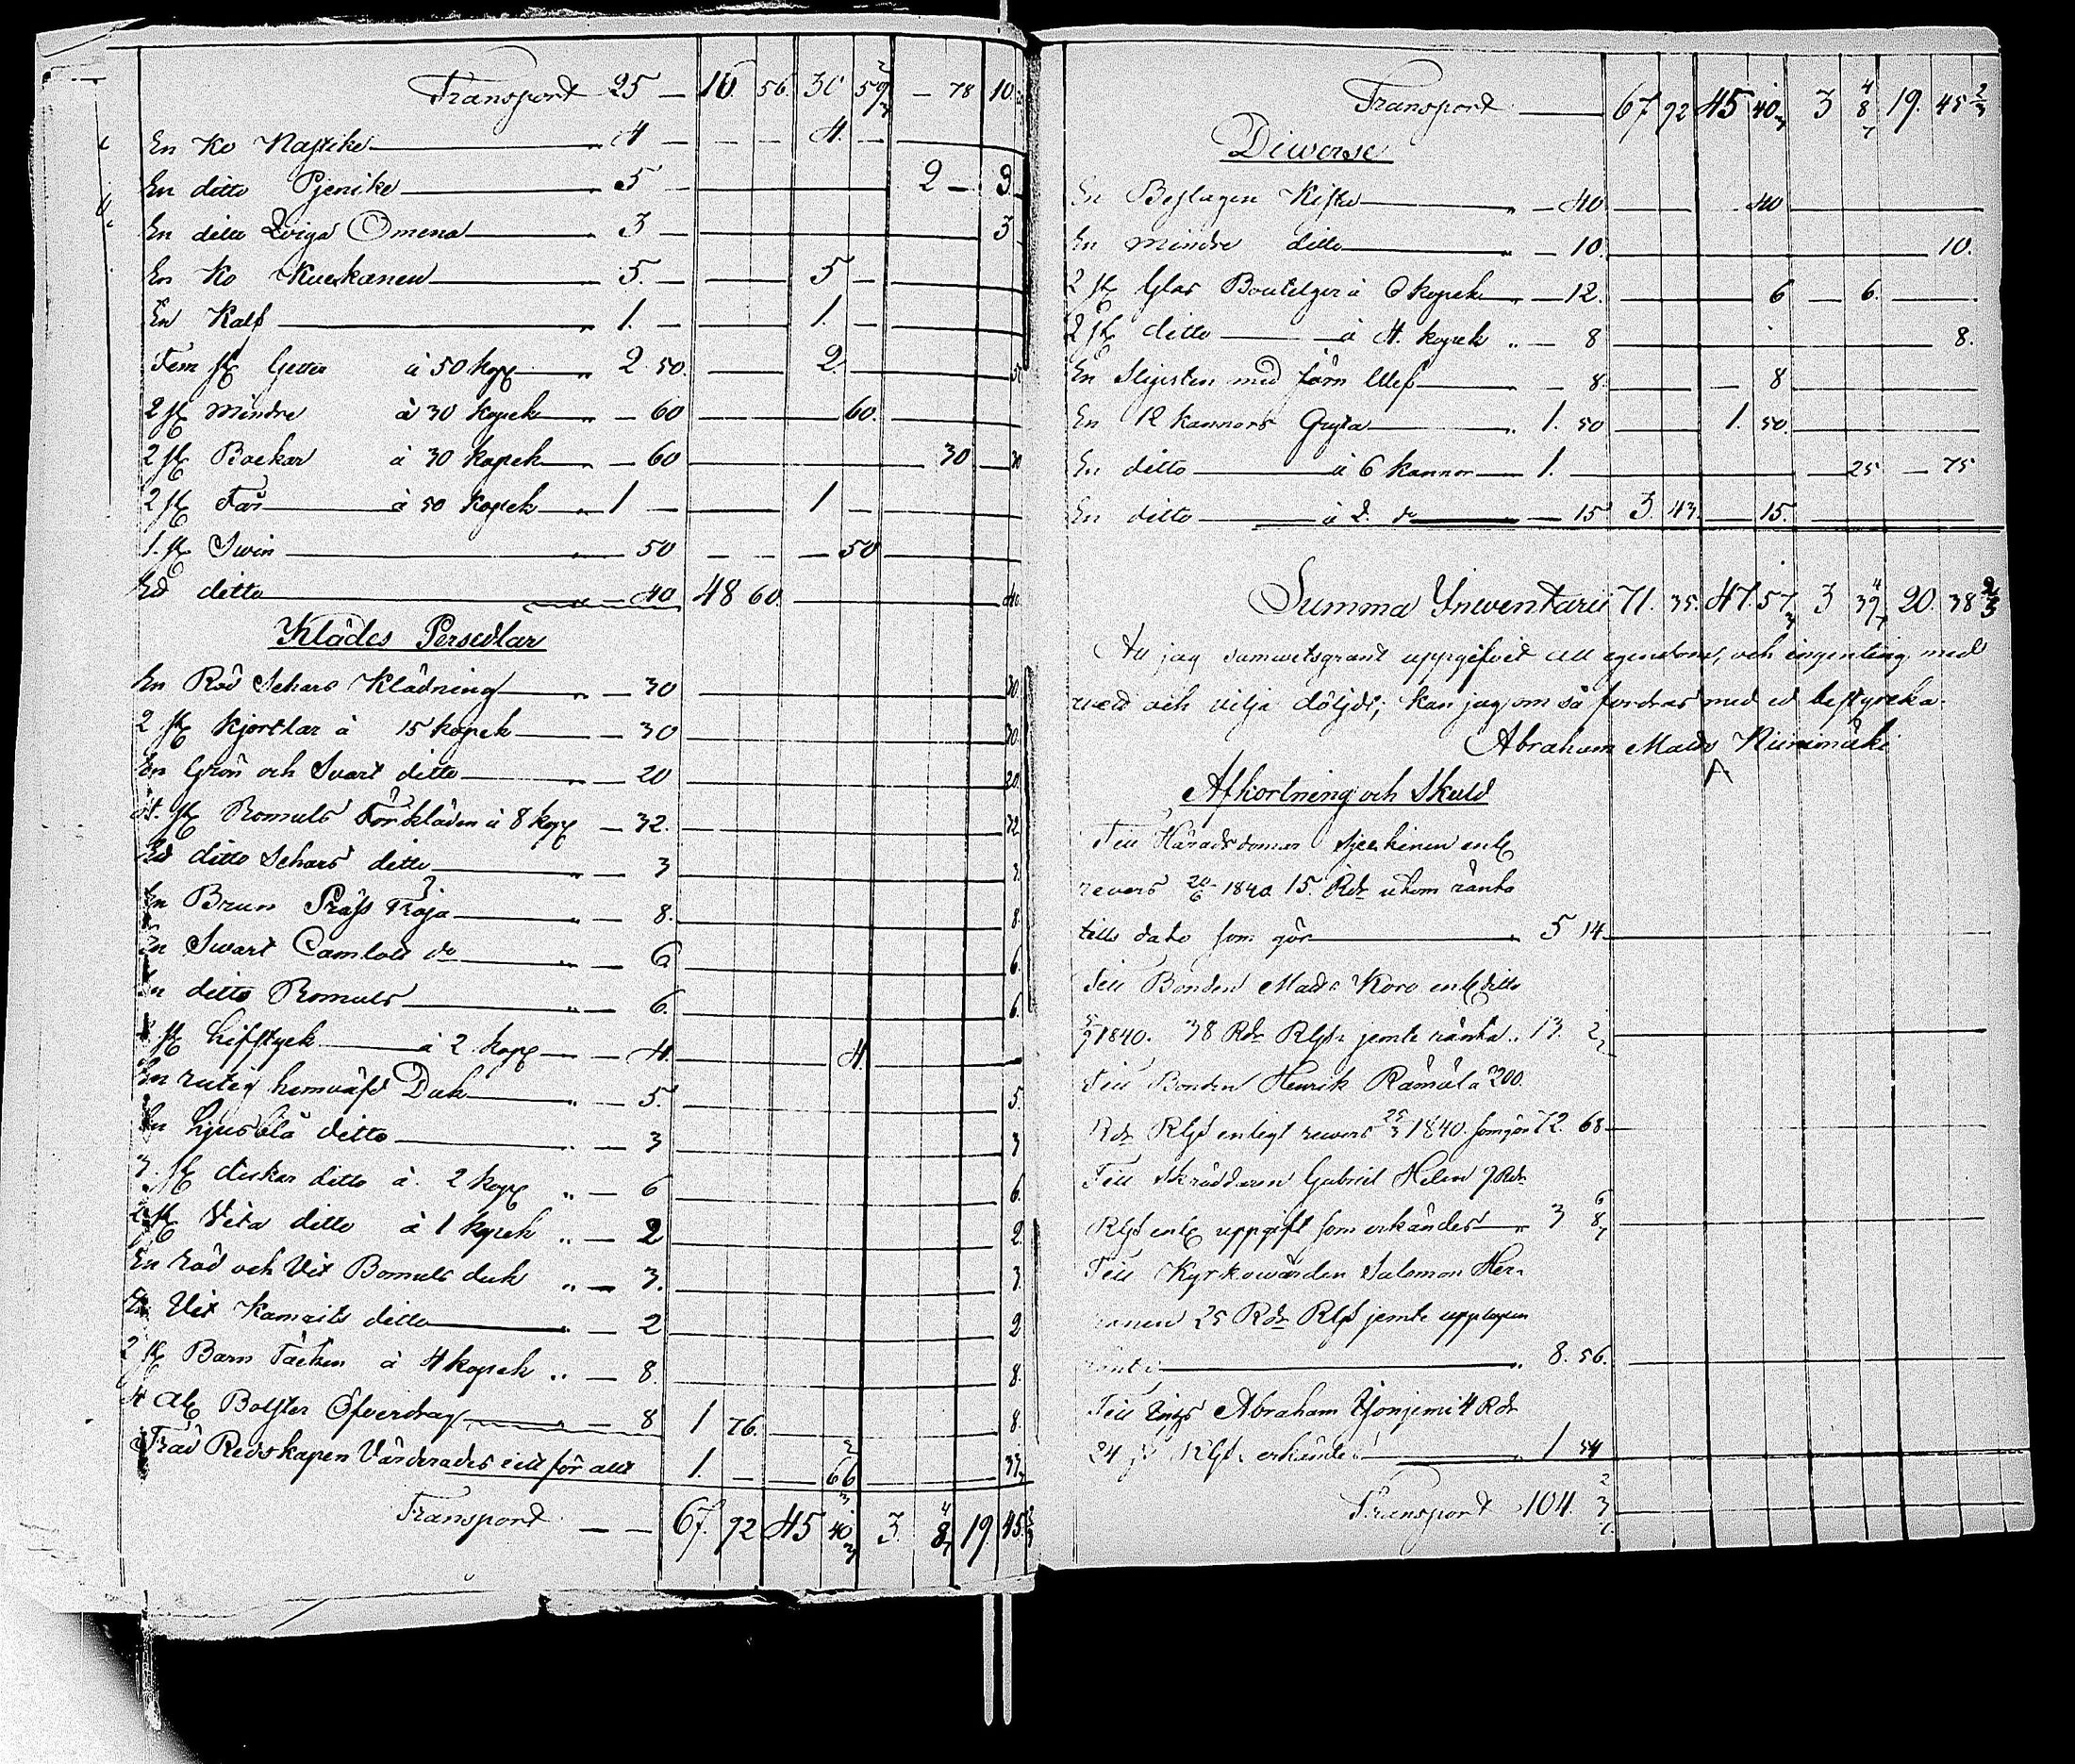 Transport 25 — 16. 56. 30 59 2/3 — 78 10.
En Ko Mastike — " 4 — — — — 4. —
En ditto Pjenike — " 5 — 2 — 3.
En ditto Qviga Omena — " 3 — 3
En Ko Kuckanen — " 5. — 5 —
En Kalf — " 1. — 1. —
Fem st Getter à 50 kop " 2. 50. 2. 50
2 st mindre à 30 Kopek " — 60 60.
2 st Bockar à 30 Kopek — 60 30 — 30
2 st Får à 50 Kopek " 1 — 1 —
1. st Svin — 50 — — — 50
Ed ditto — 40 48 60. 40
Klädes Persedlar
En Röd Schars Klädning " — 30 30.
2 st Kjortlar à 15 kopek — 30 30
En Grön och Svart ditto " — 20 20.
4. st Bomuls Förkläden à 8 kop — 32. 32
Ed ditto Schars ditto " — 3 3.
En Brun Tröja " — 8. 8.
En Swart Camlott do " — 6 6.
En ditto Bomuls " — 6. 6.
2 st Lifstyck à 2 kop — 4. 4.
En rutig hemväfd Duk " — 5. 5.
En Ljusblå ditto " — 3 3
3. st ditto à 2 kop " — 6 6.
2 st Vita ditto à 1 kopek " — 2 2.
En röd och Vit Bomuls duk " — 3. 3.
En Vit Kamrits ditto " — 2 2
2 st Barn Täcken à 4 kopek " — 8. 8.
4 aln Bolster Öfverdrag — 8 1 76. 8.
Träd Redskapen Värderades ett för allt 1. — — 66 2/3 33 1/3
Transport — — 67. 92 45 40 3. 8 4/7 19 45 2/3
Transport — 67. 92 45 40 3 8 4/7 19. 45 2/3
Diverse
En Beslagen Kista " — 40. 40
En mindre ditto " — 10. 10.
2 st Glas Boutelger à 6 kopek " — 12. 6 — 6.
2 st ditto à 4. kopek " — 8 8.
En Slipsten med järn — 8. — 8
En 12 kannors Gryta " 1. 50 1. 50.
En ditto à 6 kannor 1. — 25 — 75
En ditto à 2. do — 15 3. 43. 15.
Summa Inventarii 71. 35. 47. 57 3 37 4/7 20. 38 2/3
At jag samvetsgrant uppgifvit all egendom, och ingenting med
och vilja döljdt; kan jag om så fordras med ed bestyrka.
Abraham Mads Niinimäki
Afkortning och Skuld
Till Häradsdomar enl
revers 20/6 1840 15. Rdr utom ränta
tills dato som gör " 5 14
Till Bonden Mads Koro enl ditto
1840. 38 Rdr Rgs jemte ränta " 13. 2
Till Bonden Henrik Rämälä 200.
Rdr Rgs enligt revers 25/3 1840. som gör 72. 68
Till Skräddaren Gabriel Helin 9 Rdr
Rgs enl uppgift som erkändes 3 8 6/7
Till Kyrkovärden Salomon Her-
ranen 25 Rdr Rgs jemte upplupen
ränta " 8. 56.
Till Abraham 4 Rdr
24 Rgs erkändes 1 54
Transport 104. 3 2/7